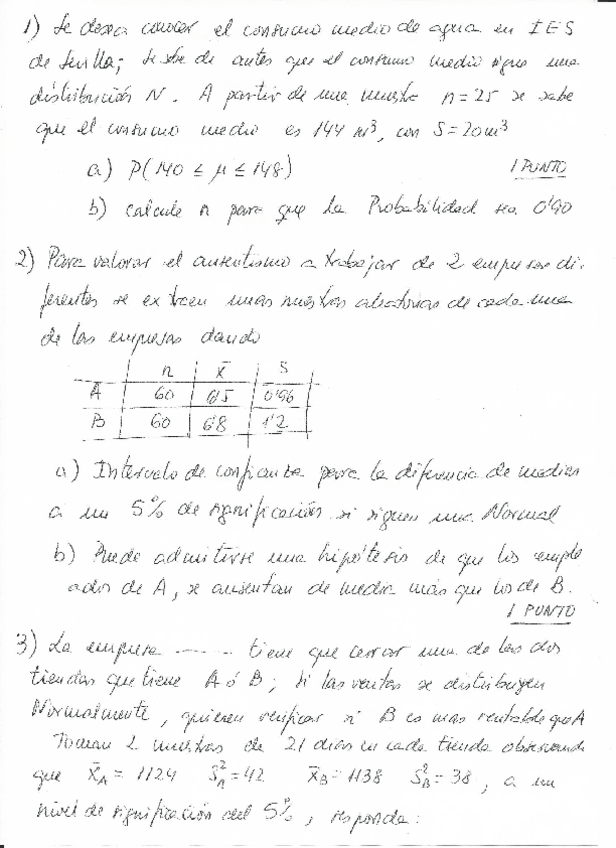 1) Se desea conocer el consumo medio de agua en IES
de Sevilla; se sabe de antes que el consumo medio sigue una
distribución N. A partir de una muestra n=25 se sabe
que el consumo medio es 144 m³, con S=20m³
a) P(140 ≤ μ ≤ 148) 1 PUNTO
b) calcule n para que la Probabilidad sea 0'90
2) Para valorar el ausentismo a trabajar de 2 empresas di-
ferentes se extraen unas muestras aleatorias de cada una
de las empresas dando
n x̄ S
A 60 6'5 0'96
B 60 6'8 1'2
a) Intervalo de confianza para la diferencia de medias
a un 5% de significación si siguen una Normal
b) Puede admitirse una hipótesis de que los emple
ados de A, se ausentan de media más que los de B.
1 PUNTO
3) La empresa ........ tiene que cerrar una de las dos
tiendas que tiene A ó B; si las ventas se distribuyen
Normalmente, quieren verificar si B es mas rentable que A
Toman 2 muestras de 21 dias en cada tienda observando
que X̄A = 1124 S²A = 42 X̄B = 1138 S²B = 38, a un
nivel de significación del 5%, responda: